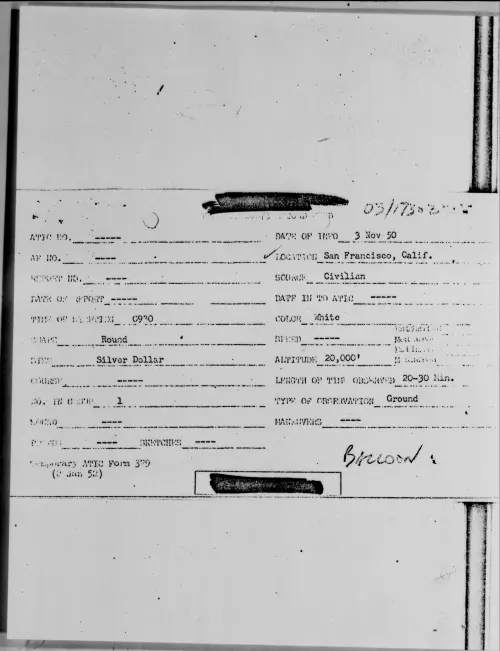 03/1730Z
ATIC NO. ----- DATE OF INFO 3 Nov 50
AF NO. ---- LOCATION San Francisco, Calif.
REPORT NO. ---- SOURCE Civilian
DATE OF REPORT ----- DATE IN TO ATIC -----
TIME OF SIGHTING 0930 COLOR White
SHAPE Round SPEED -----
SIZE Silver Dollar ALTITUDE 20,000'
COURSE ----- LENGTH OF TIME OBSERVED 20-30 Min.
NO. IN GROUP 1 TYPE OF OBSERVATION Ground
SOUND ---- MANEUVERS ----
PHOTOS ---- SKETCHES ----
Temporary ATIC Form 329
(2 Jan 52)
BALLOON